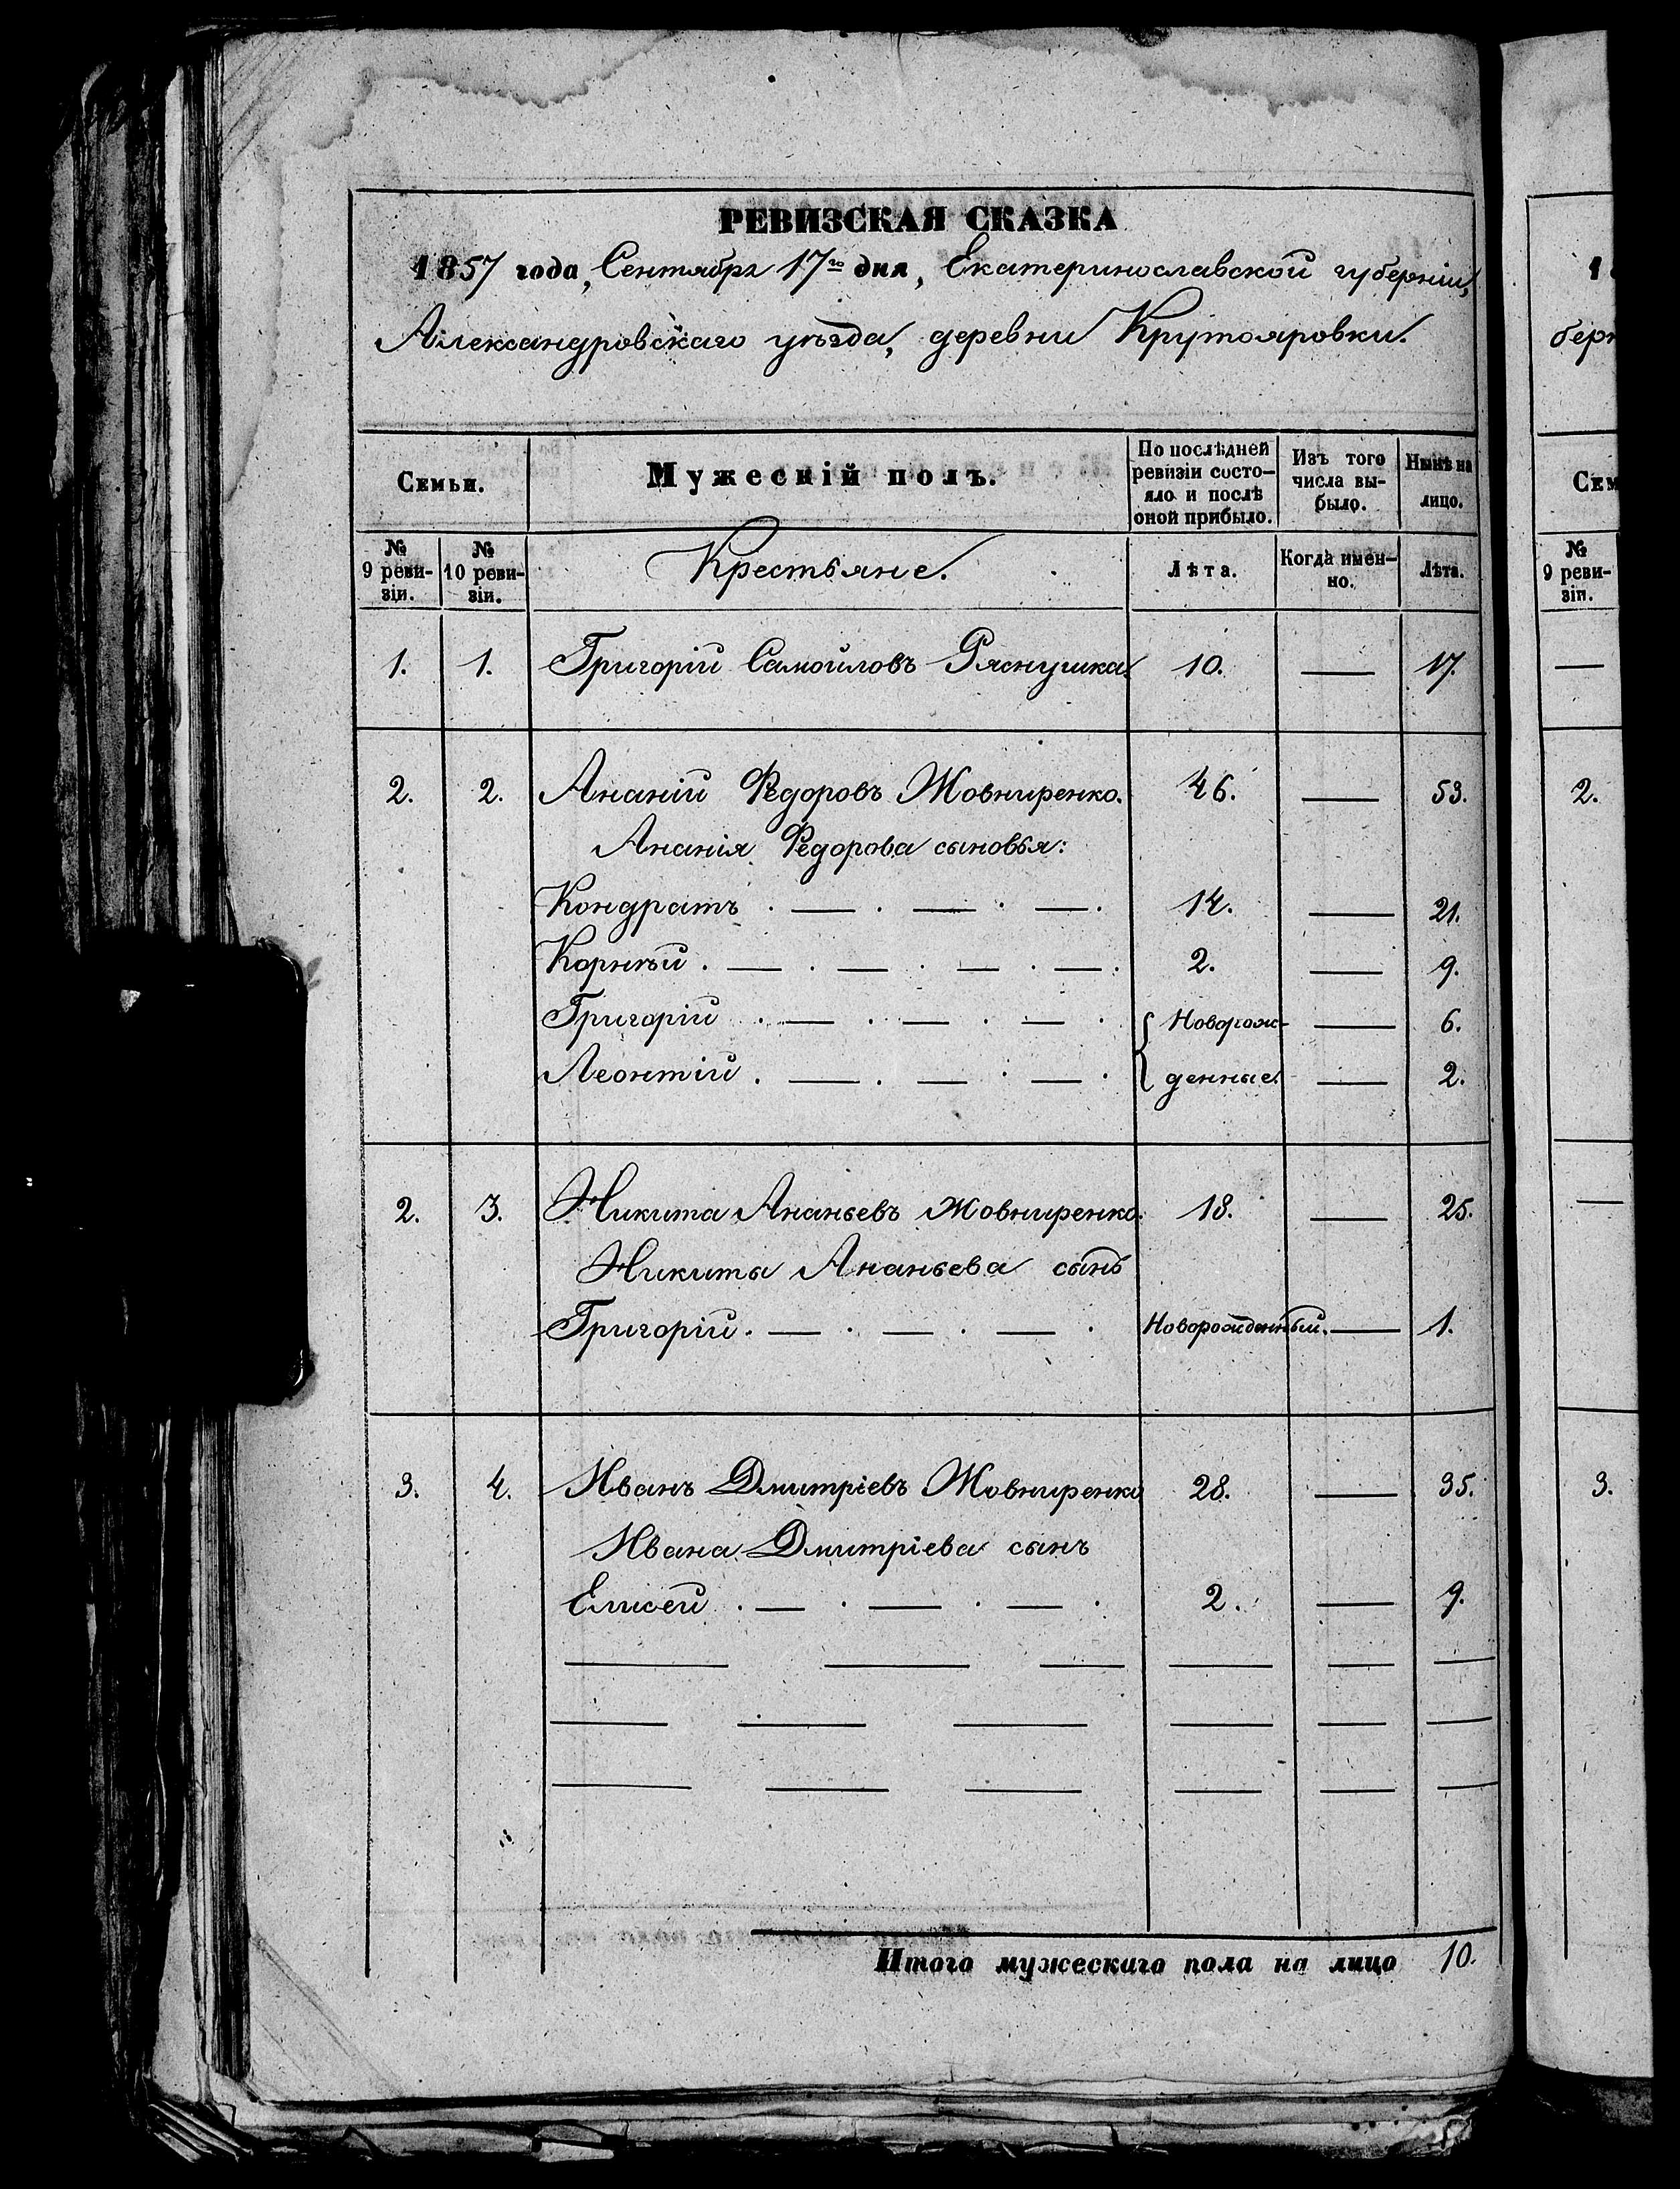 РЕВИЗСКАЯ СКАЗКА
1857 года, Сентября 17го дня, Екатеринославской губерніи,
Александровскаго уѣзда, деревни Крутояровки.
Семьи. Мужескій полъ. По послѣдней ревизіи состояло и послѣ оной прибыло. Изъ того числа выбыло. Нынѣ на лицо.
№ 9 ревизіи. № 10 ревизіи. Крестьяне. Лѣта. Когда именно. Лѣта.
1. 1. Григорій Самойловъ Ряснушка. 10. — 17.
2. 2. Ананій Федоровъ Жовниренко. 46. — 53.
Ананія Федорова сыновья:
Кондратъ . — . — . — . 14. — 21.
Корнѣй . — . — . — . — . 2. — 9.
Григорій . — . — . — . { Новорож- — 6.
Леонтій . — . — . — . { денные. — 2.
2. 3. Никита Ананьевъ Жовниренко. 18. — 25.
Никиты Ананьева сынъ
Григорій . — . — . — . Новорожденный. — 1.
3. 4. Иванъ Дмитріевъ Жовниренко 28. — 35.
Ивана Дмитріева сынъ
Елисей . — . — . — . 2. — 9.
Итого мужескаго пола на лицо 10.
1
бер
Сем
№ 9 ревизіи.
—
2.
—
3.